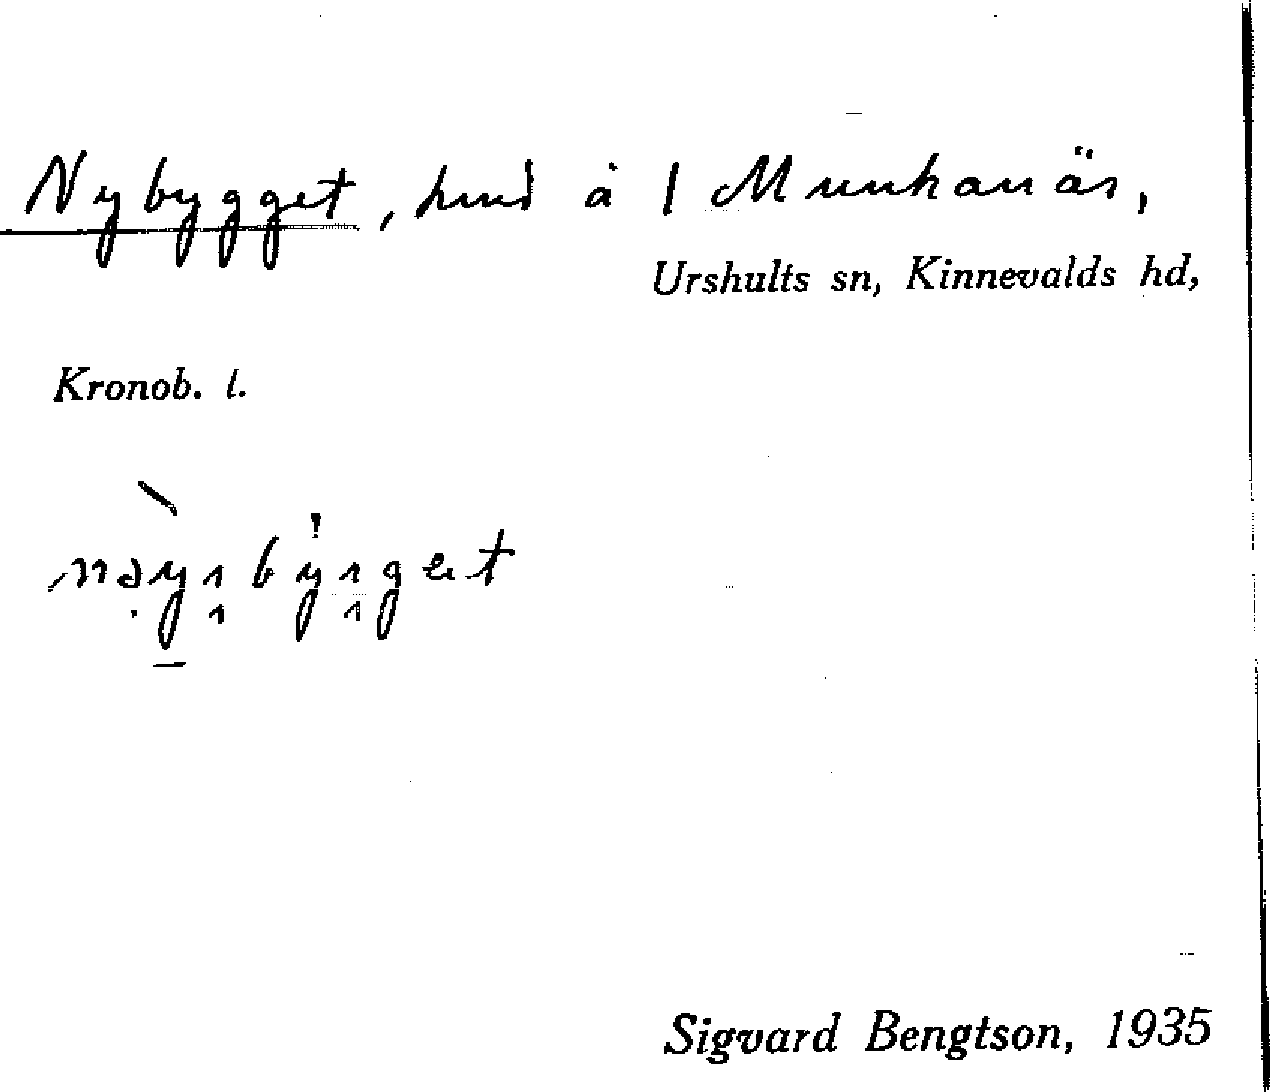 Nybygget, hmd å 1 Munkanäs,
Urshults sn, Kinnevalds hd,
Kronob. l.
Sigvard Bengtson, 1935